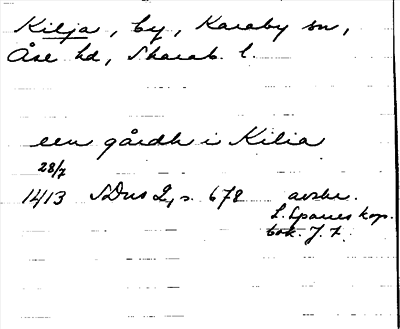 Kilja, by, Karaby sn,
Åse hd, Skarab. l.
een gårdh i Kilia
28/7
1413 SDns 2, s. 678 avskr.
L. Sparres kop.
bok. f. 7.